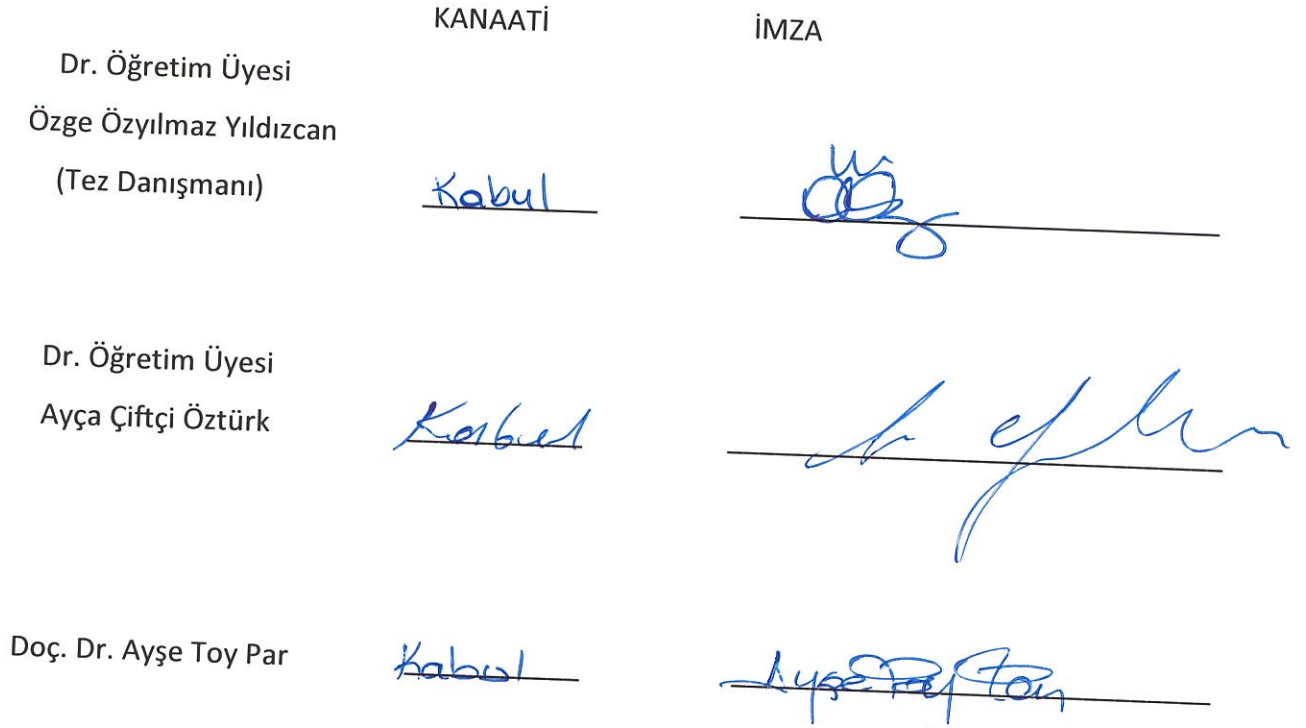 KANAATİ İMZA
Dr. Öğretim Üyesi
Özge Özyılmaz Yıldızcan
(Tez Danışmanı) Kabul
Dr. Öğretim Üyesi
Ayça Çiftçi Öztürk Kabul
Doç. Dr. Ayşe Toy Par Kabul Ayşe Toy Par